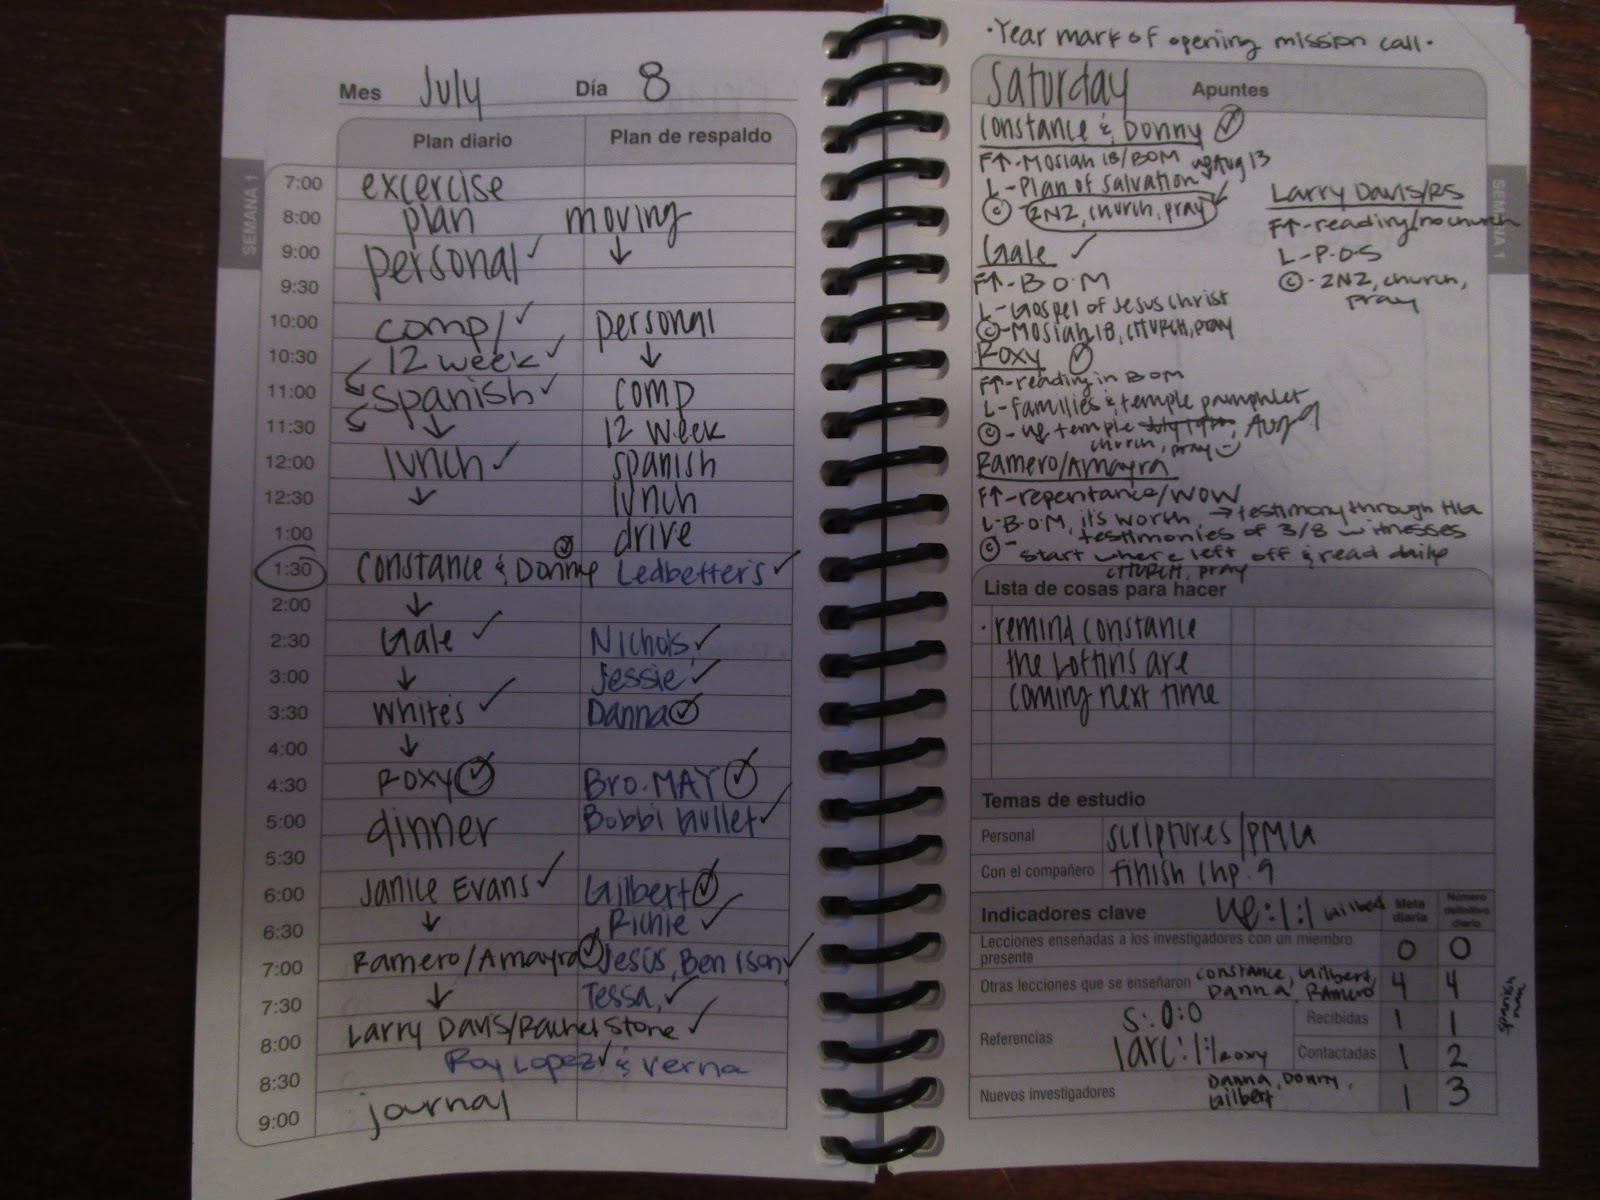 Mes July Día 8
Plan diario Plan de respaldo
SEMANA 1
7:00 excercise
8:00 plan moving
9:00 personal ✓ ↓
9:30
10:00 comp/ ✓ personal
10:30 12 week ✓ ↓
11:00 spanish ✓ comp
11:30 ↓ 12 week
12:00 lunch ✓ spanish
12:30 ↓ lunch
1:00 drive
1:30 Constance & Donny ✓ Ledbetter's ✓
2:00 ↓
2:30 Gale ✓ Nichols ✓
3:00 ↓ Jessie ✓
3:30 Whites ✓ Danna ✓
4:00 ↓
4:30 Roxy ✓ Bro. MAY ✓
5:00 dinner Bobbi Gullet ✓
5:30
6:00 Janice Evans ✓ Gilbert ✓
6:30 ↓ Richie ✓
7:00 Ramero/Amayra ✓ Jesus, Ben Ison ✓
7:30 ↓ Tessa, ✓
8:00 Larry Davis/Rachel Stone ✓
8:30 Roy Lopez ✓ & Verna
9:00 journal
• Year mark of opening mission call •
Saturday Apuntes
Constance & Donny ✓
F↑-Mosiah 18/BOM Aug 13
L-Plan of Salvation
© 2N2, church, pray
Gale ✓
F↑-B.O.M
L-Gospel of Jesus Christ
©-Mosiah 18, CHURCH, pray
Roxy ✓
F↑-reading in BOM
L-families & temple pamphlet
©- temple Aug 9
church, pray
Ramero/Amayra
F↑-repentance/WOW
L-B.O.M, its worth, → testimony through HG
testimonies of 3/8 witnesses
©- start where left off & read daily
CHURCH, pray
Larry Davis/RS
F↑-reading/no church
L-P.O.S
©-2N2, church,
pray
SEMANA 1
Lista de cosas para hacer
• remind Constance
the Loftins are
coming next time
Temas de estudio
Personal scriptures/PMG
Con el compañero finish Chp. 9
Indicadores clave :1:1 Gilbert Meta diaria Número definitivo diario
Lecciones enseñadas a los investigadores con un miembro presente 0 0
Otras lecciones que se enseñaron Constance, Gilbert, Danna, Ramero 4 4
Referencias S:0:0 Recibidas 1 1
larc:1:1 Roxy Contactadas 1 2
spanish man
Nuevos investigadores Danna, Donny, Gilbert 1 3